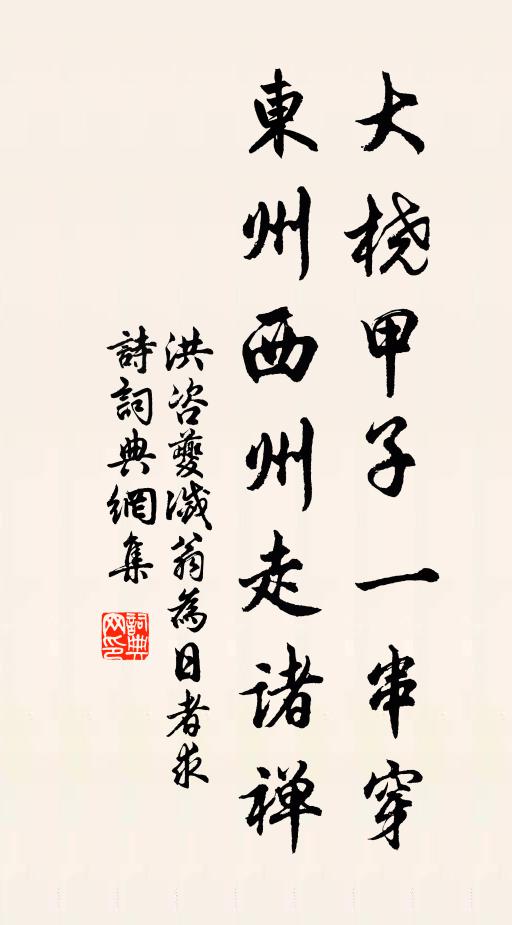 大桡甲子一串穿
東州西州走諸禅
洪咨夔滅翁為日者求
詩詞典網集
詞典网印